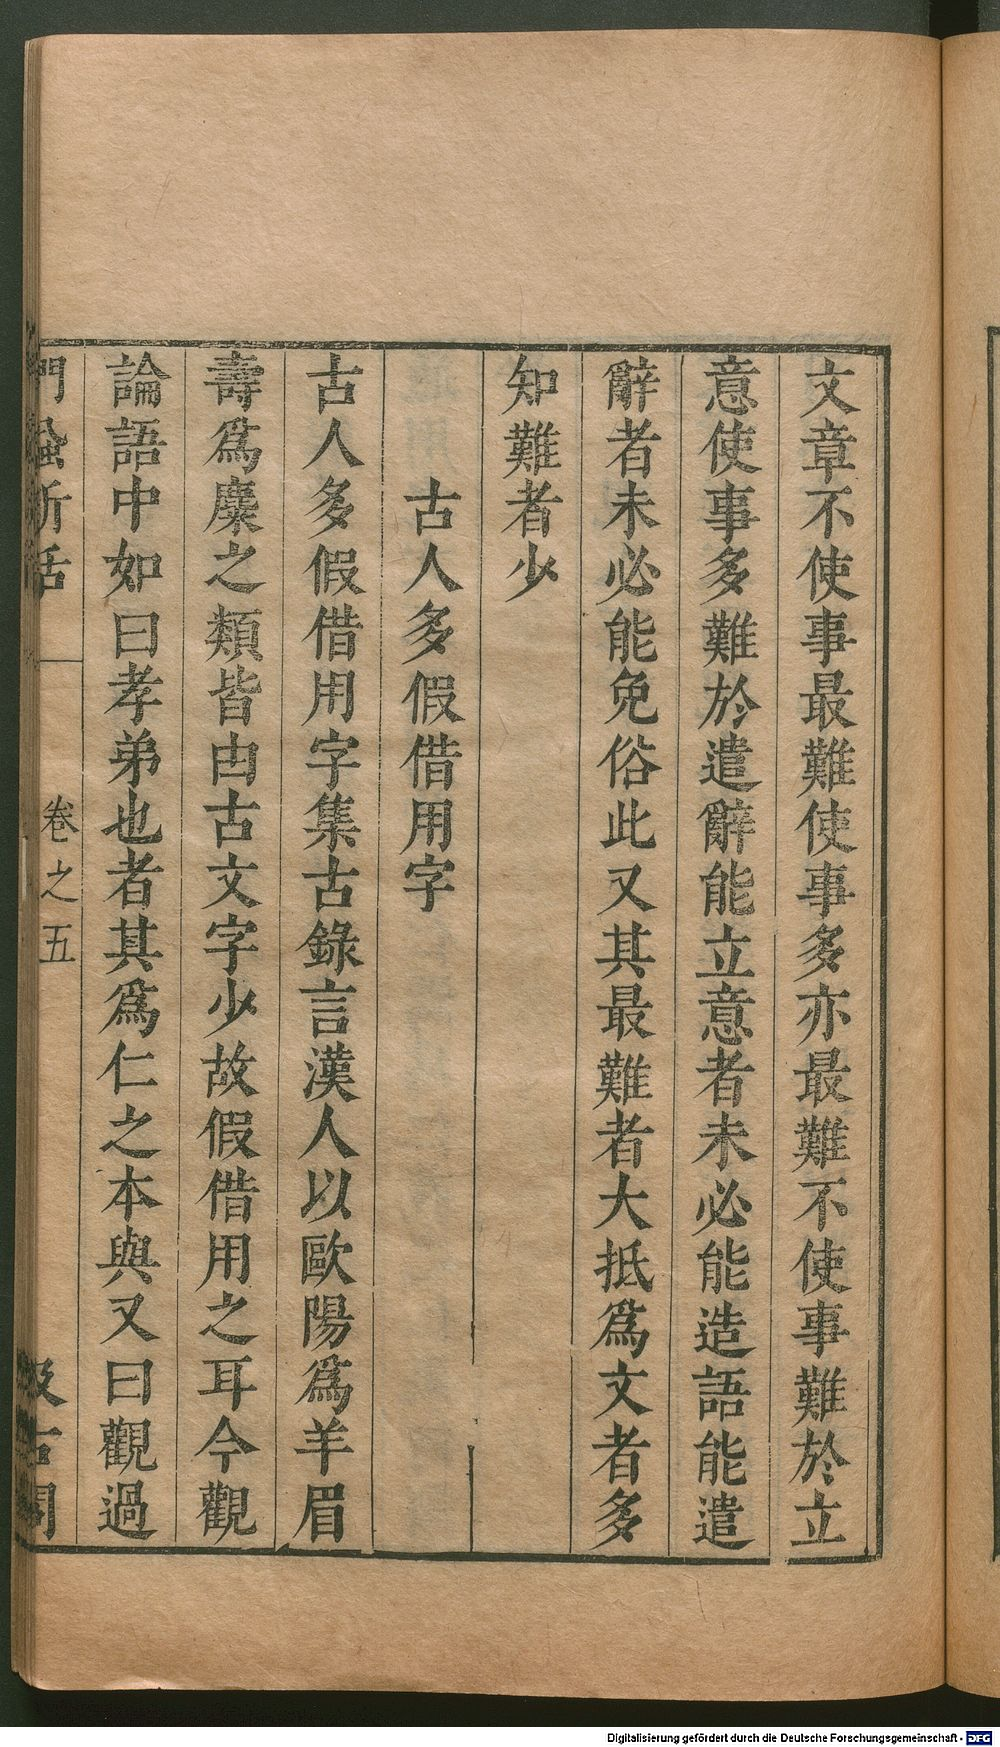 文章不使事最難使事多亦最難不使事難於立
意使事多難於遣辭能立意者未必能造語能遣
辭者未必能免俗此又其最難者大抵爲文者多
知難者少
古人多假借用字
古人多假借用字集古錄言漢人以歐陽爲羊眉
壽爲麋之類皆由古文字少故假借用之耳今觀
論語中如曰孝弟也者其爲仁之本與又曰觀過
門蝨新話
卷之五
汲古閣
Digitalisierung gefördert durch die Deutsche Forschungsgemeinschaft - DFG